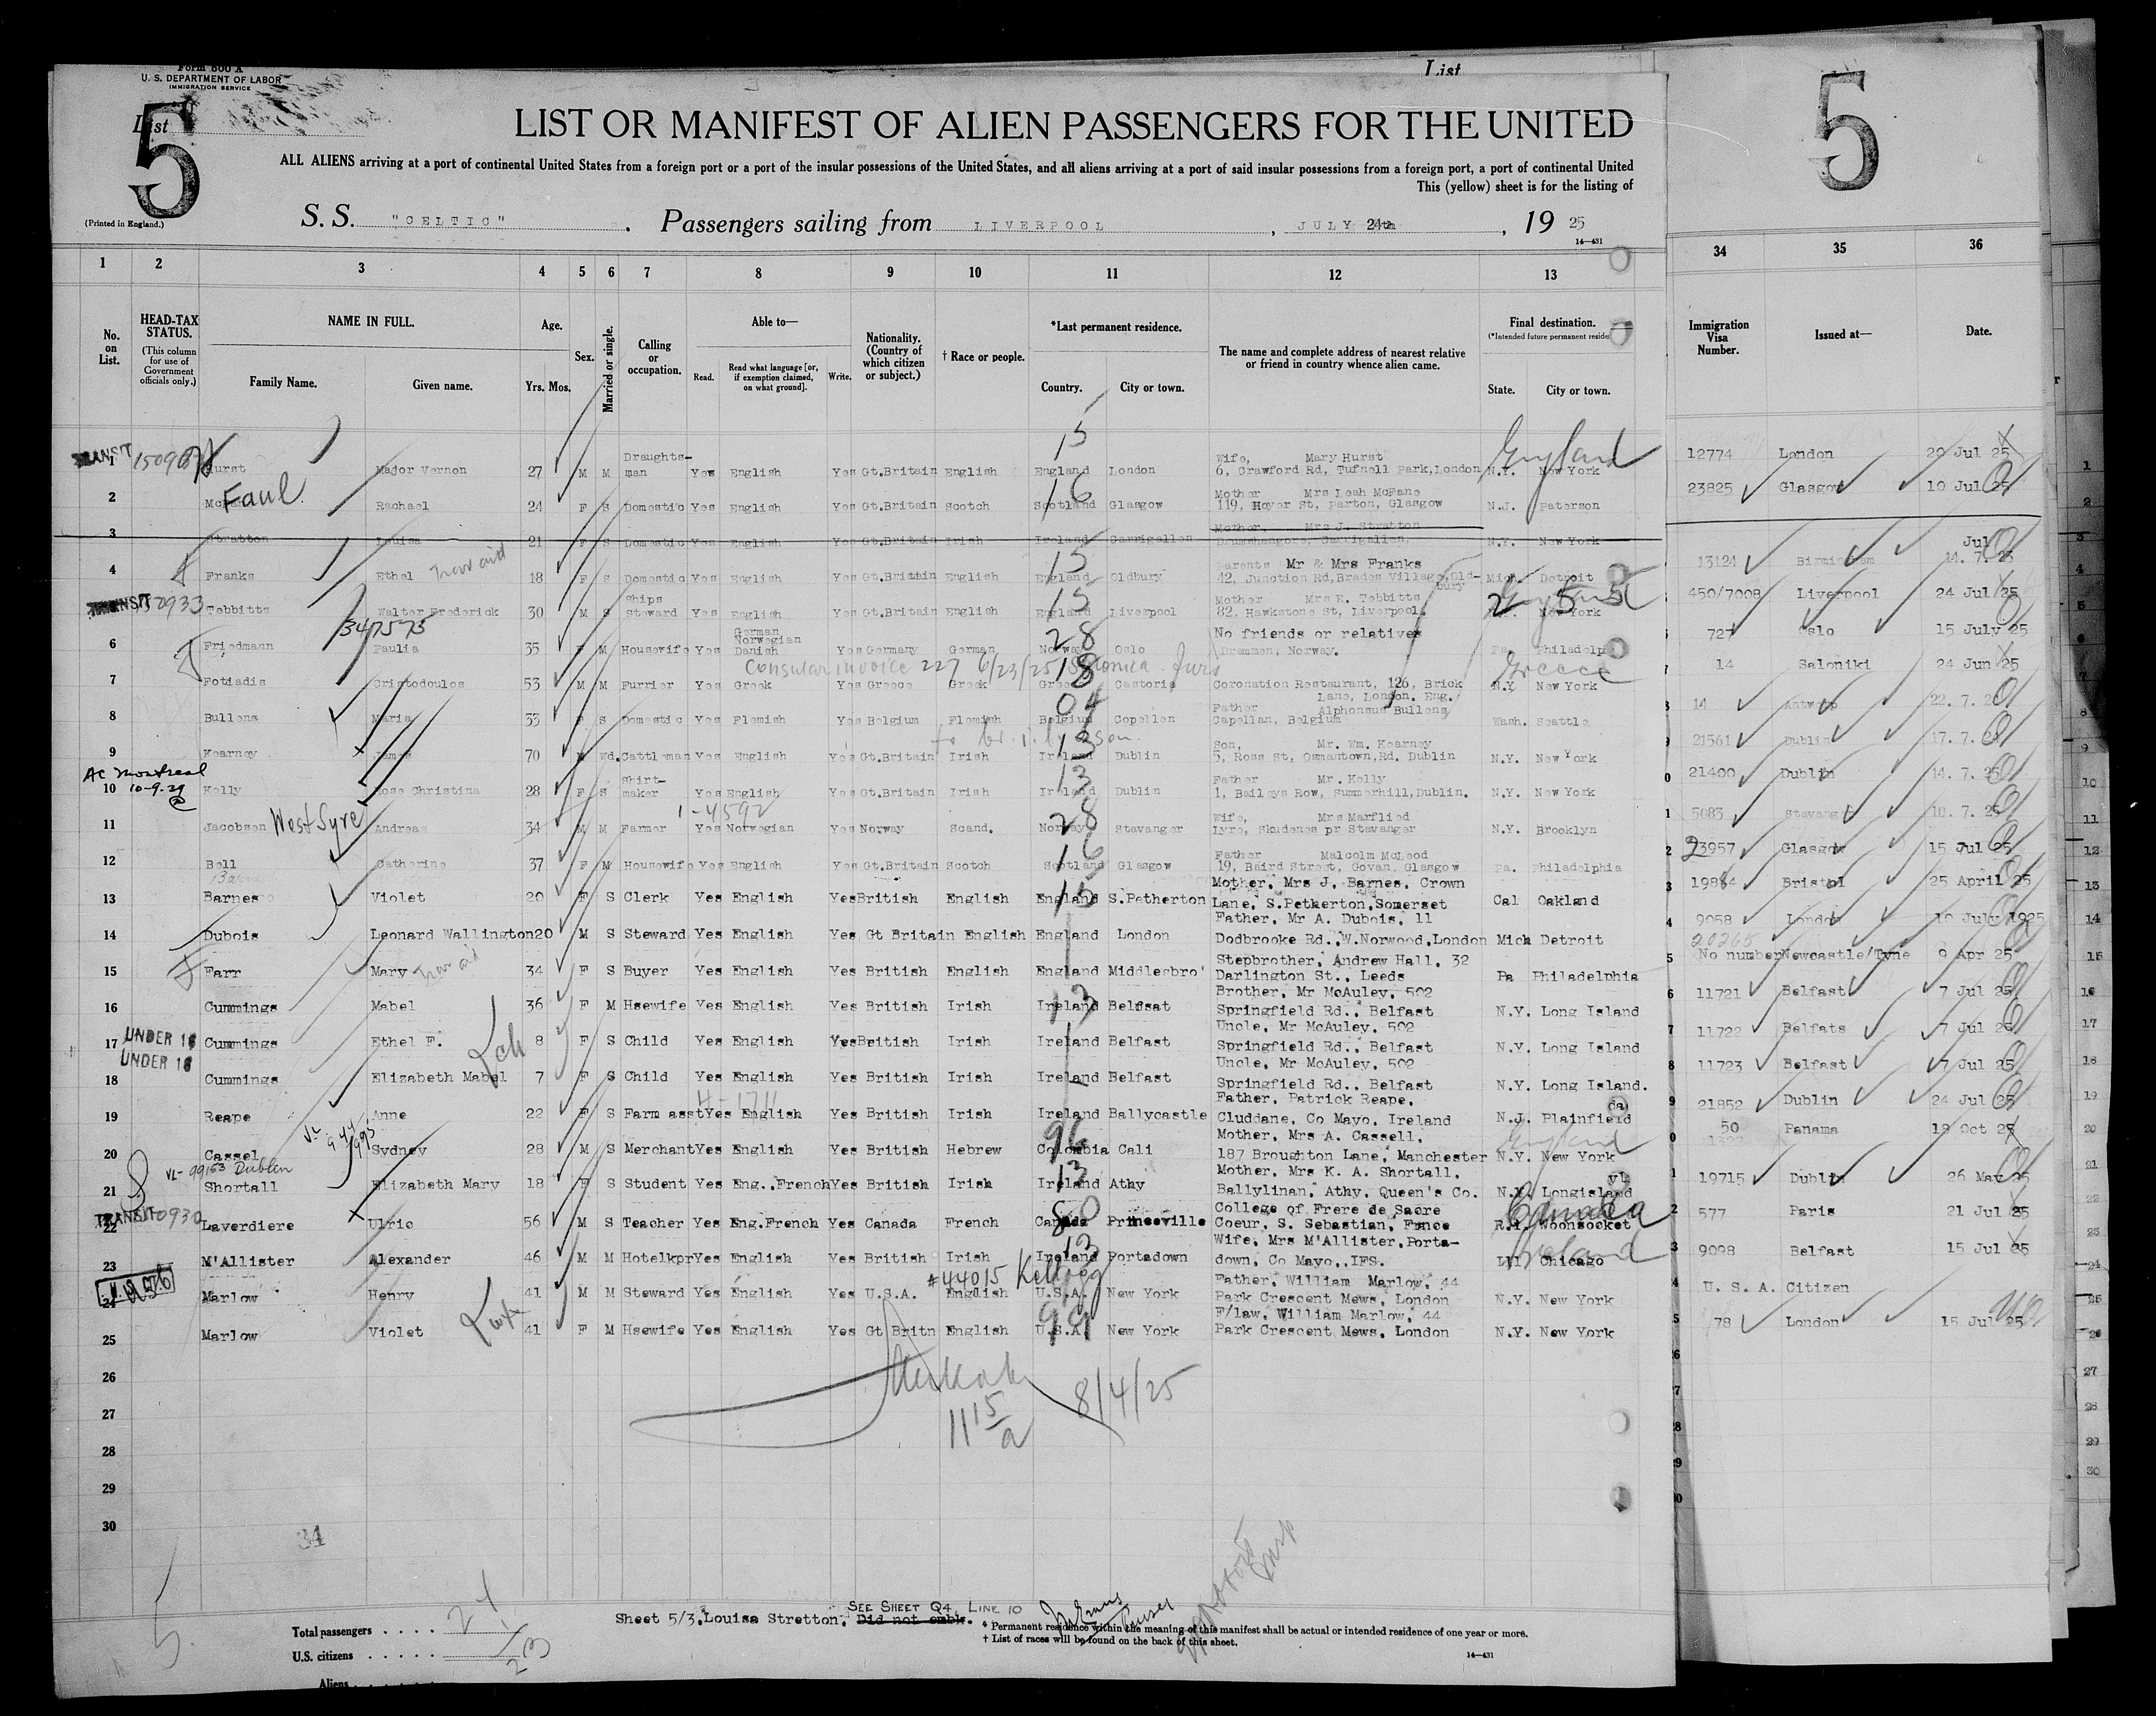 Form 500 A
U. S. DEPARTMENT OF LABOR
IMMIGRATION SERVICE
List
List
5
5
LIST OR MANIFEST OF ALIEN PASSENGERS FOR THE UNITED
ALL ALIENS arriving at a port of continental United States from a foreign port or a port of the insular possessions of the United States, and all aliens arriving at a port of said insular possessions from a foreign port, a port of continental United
This (yellow) sheet is for the listing of
(Printed in England.)
S. S. "CELTIC" . Passengers sailing from LIVERPOOL , JULY 24th , 19 25
14—431
1 2 3 4 5 6 7 8 9 10 11 12 13 34 35 36
No. on List. HEAD-TAX STATUS. (This column for use of Government officials only.) NAME IN FULL. Family Name. Given name. Age. Yrs. Mos. Sex. Married or single. Calling or occupation. Able to— Read. Read what language [or, if exemption claimed, on what ground]. Write. Nationality. (Country of which citizen or subject.) † Race or people. *Last permanent residence. Country. City or town. The name and complete address of nearest relative or friend in country whence alien came. Final destination. (*Intended future permanent reside State. City or town. Immigration Visa Number. Issued at— Date.
TRANSIT 15 England
1 Hurst Major Vernon 27 M M Draughts-man Yes English Yes Gt.Britain English England London Wife, Mary Hurst 6, Crawford Rd, Tufnell Park, London N.Y. New York 12774 London 20 Jul 25
Faul 16
2 Rachael 24 F S Domestic Yes English Yes Gt.Britain Scotch Scotland Glasgow Mother Mrs Leah McFane 119, Hoyer St, Parton, Glasgow N.J. Paterson 23825 Glasgow 10 Jul 25
3 Stratton Louisa 21 F S Domestic Yes English Yes Gt.Britain Irish Ireland Carrigallen Mother, Mrs J. Stratton Drumshangore, Carrigallen. N.Y. New York
15
4 Franks Ethel 18 F S Domestic Yes English Yes Gt.Britain English England Oldbury Parents Mr & Mrs Franks 42, Junction Rd, Brades Village, Old-bury Mich. Detroit 13124 Birmingham Jul 14. 7. 25
TRANSIT 150933 15
5 Tebbitts Walter Frederick 30 M S Ships steward Yes English Yes Gt.Britain English England Liverpool Mother Mrs E. Tebbitts 82, Hawkstone St, Liverpool. New York 450/7008 Liverpool 24 Jul 25
347573 28
6 Friedmann Paulia 35 F M Housewife Yes German Norwegian Danish Yes Germany German Norway Oslo No friends or relatives Drammen, Norway. Pa. Philadelp 727 Oslo 15 July 25
Consular invoice 227 6/23/25 Salonica furs 18 Greece
7 Fotiadis Cristodoulos 53 M M Furrier Yes Greek Yes Greece Greek Greece Castoria Coronation Restaurant, 126, Brick Lane, London. Eng. N.Y. New York 14 Saloniki 24 Jun 25
04
8 Bullens Maria 33 F S Domestic Yes Flemish Yes Belgium Flemish Belgium Copellen Father Alphonsus Bullens, Capellan, Belgium Wash. Seattle 14 Antwerp 22. 7.
13
9 Kearney James 70 M Wd. Cattleman Yes English Yes Gt.Britain Irish Ireland Dublin Son, Mr. Wm. Kearney 5, Ross St, Osmantown, Rd. Dublin N.Y. New York 21561 Dublin 17. 7.
AC Montreal 10-9-29 13
10 Kelly Rose Christina 28 F S Shirt-maker Yes English Yes Gt.Britain Irish Ireland Dublin Father Mr. Kelly 1, Baileys Row, Summerhill, Dublin. N.Y. New York 21400 Dublin 14. 7. 25
West Syre 1-4592 28
11 Jacobsen Andreas 34 M M Farmer Yes Norwegian Yes Norway Scand. Norway Stavanger Wife, Mrs Marflied Lyre, Skudenes pr Stavanger N.Y. Brooklyn 5083 Stavang 10. 7. 25
16
12 Bell Catherine 37 F M Housewife Yes English Yes Gt.Britain Scotch Scotland Glasgow Father Malcolm McLeod 19, Baird Street, Govan, Glasgow Pa. Philadelphia 23957 Glasgow 15 Jul 25
15
13 Barnes Violet 20 F S Clerk Yes English Yes British English England S.Petherton Mother, Mrs J. Barnes, Crown Lane, S.Petherton, Somerset Cal Oakland 19884 Bristol 25 April 25
14 Dubois Leonard Wallington 20 M S Steward Yes English Yes Gt Britain English England London Father, Mr A. Dubois, 11 Dodbrooke Rd., W.Norwood, London Mich Detroit 9058 London 10 July 1925
20265
15 Farr Mary 34 F S Buyer Yes English Yes British English England Middlesbro' Stepbrother, Andrew Hall, 32 Darlington St., Leeds Pa Philadelphia No number Newcastle/Tyne 9 Apr 25
13
16 Cummings Mabel 36 F M Hsewife Yes English Yes British Irish Ireland Belfsat Brother, Mr McAuley, 502 Springfield Rd., Belfast N.Y. Long Island 11721 Belfast 7 Jul 25
UNDER 16
17 Cummings Ethel F. 8 F S Child Yes English Yes British Irish Ireland Belfast Uncle, Mr McAuley, 502 Springfield Rd., Belfast N.Y. Long Island 11722 Belfats 7 Jul 25
UNDER 16
18 Cummings Elizabeth Mabel 7 F S Child Yes English Yes British Irish Ireland Belfast Uncle, Mr McAuley, 502 Springfield Rd., Belfast N.Y. Long Island. 11723 Belfast 7 Jul 25
4-1711
19 Reape Anne 22 F S Farm asst Yes English Yes British Irish Ireland Ballycastle Father, Patrick Reape, Cluddane, Co Mayo, Ireland N.J. Plainfield 21852 Dublin 24 Jul 25
96 England
20 Cassel Sydney 28 M S Merchant Yes English Yes British Hebrew Colombia Cali Mother, Mrs A. Cassell, 187 Broughton Lane, Manchester N.Y. New York 50 Panama 18 Oct
VL- 99153 Dublin 13
21 Shortall Elizabeth Mary 18 F S Student Yes Eng.,French Yes British Irish Ireland Athy Mother, Mrs K. A. Shortall, Ballylinan, Athy, Queen's Co. N.Y. Longisland 19715 Dublin 26 May 25
TRANSIT 150930 80 Canada
22 Laverdiere Ulric 56 M S Teacher Yes Eng.French Yes Canada French Canada Princeville College of Frere de Sacre Coeur, S. Sebastian, Fance R.I. Woonsocket 577 Paris 21 Jul 25
13 Ireland
23 M'Allister Alexander 46 M M Hotelkpr Yes English Yes British Irish Ireland Portadown Wife, Mrs M'Allister, Porta-down, Co Mayo,.IFS. Lll Chicago 9098 Belfast 15 Jul 25
#44015 Kellogg
24 Marlow Henry 41 M M Steward Yes English Yes U.S.A. English U.S.A. New York Father, William Marlow, 44 Park Crescent Mews, London N.Y. New York U. S. A. Citizen
99
25 Marlow Violet 41 F M Hsewife Yes English Yes Gt Britn English U.S.A. New York F/law, William Marlow, 44 Park Crescent Mews, London N.Y. New York 78 London 15 Jul 25
26
8/4/25
27
11 15 a
28
29
30
34
SEE SHEET Q4, LINE 10
Sheet 5/3. Louisa Stretton. Did not embk.
Total passengers . . . . 24
U.S. citizens . . . . . 1
Aliens 23
* Permanent residence within the meaning of this manifest shall be actual or intended residence of one year or more.
† List of races will be found on the back of this sheet.
14—431